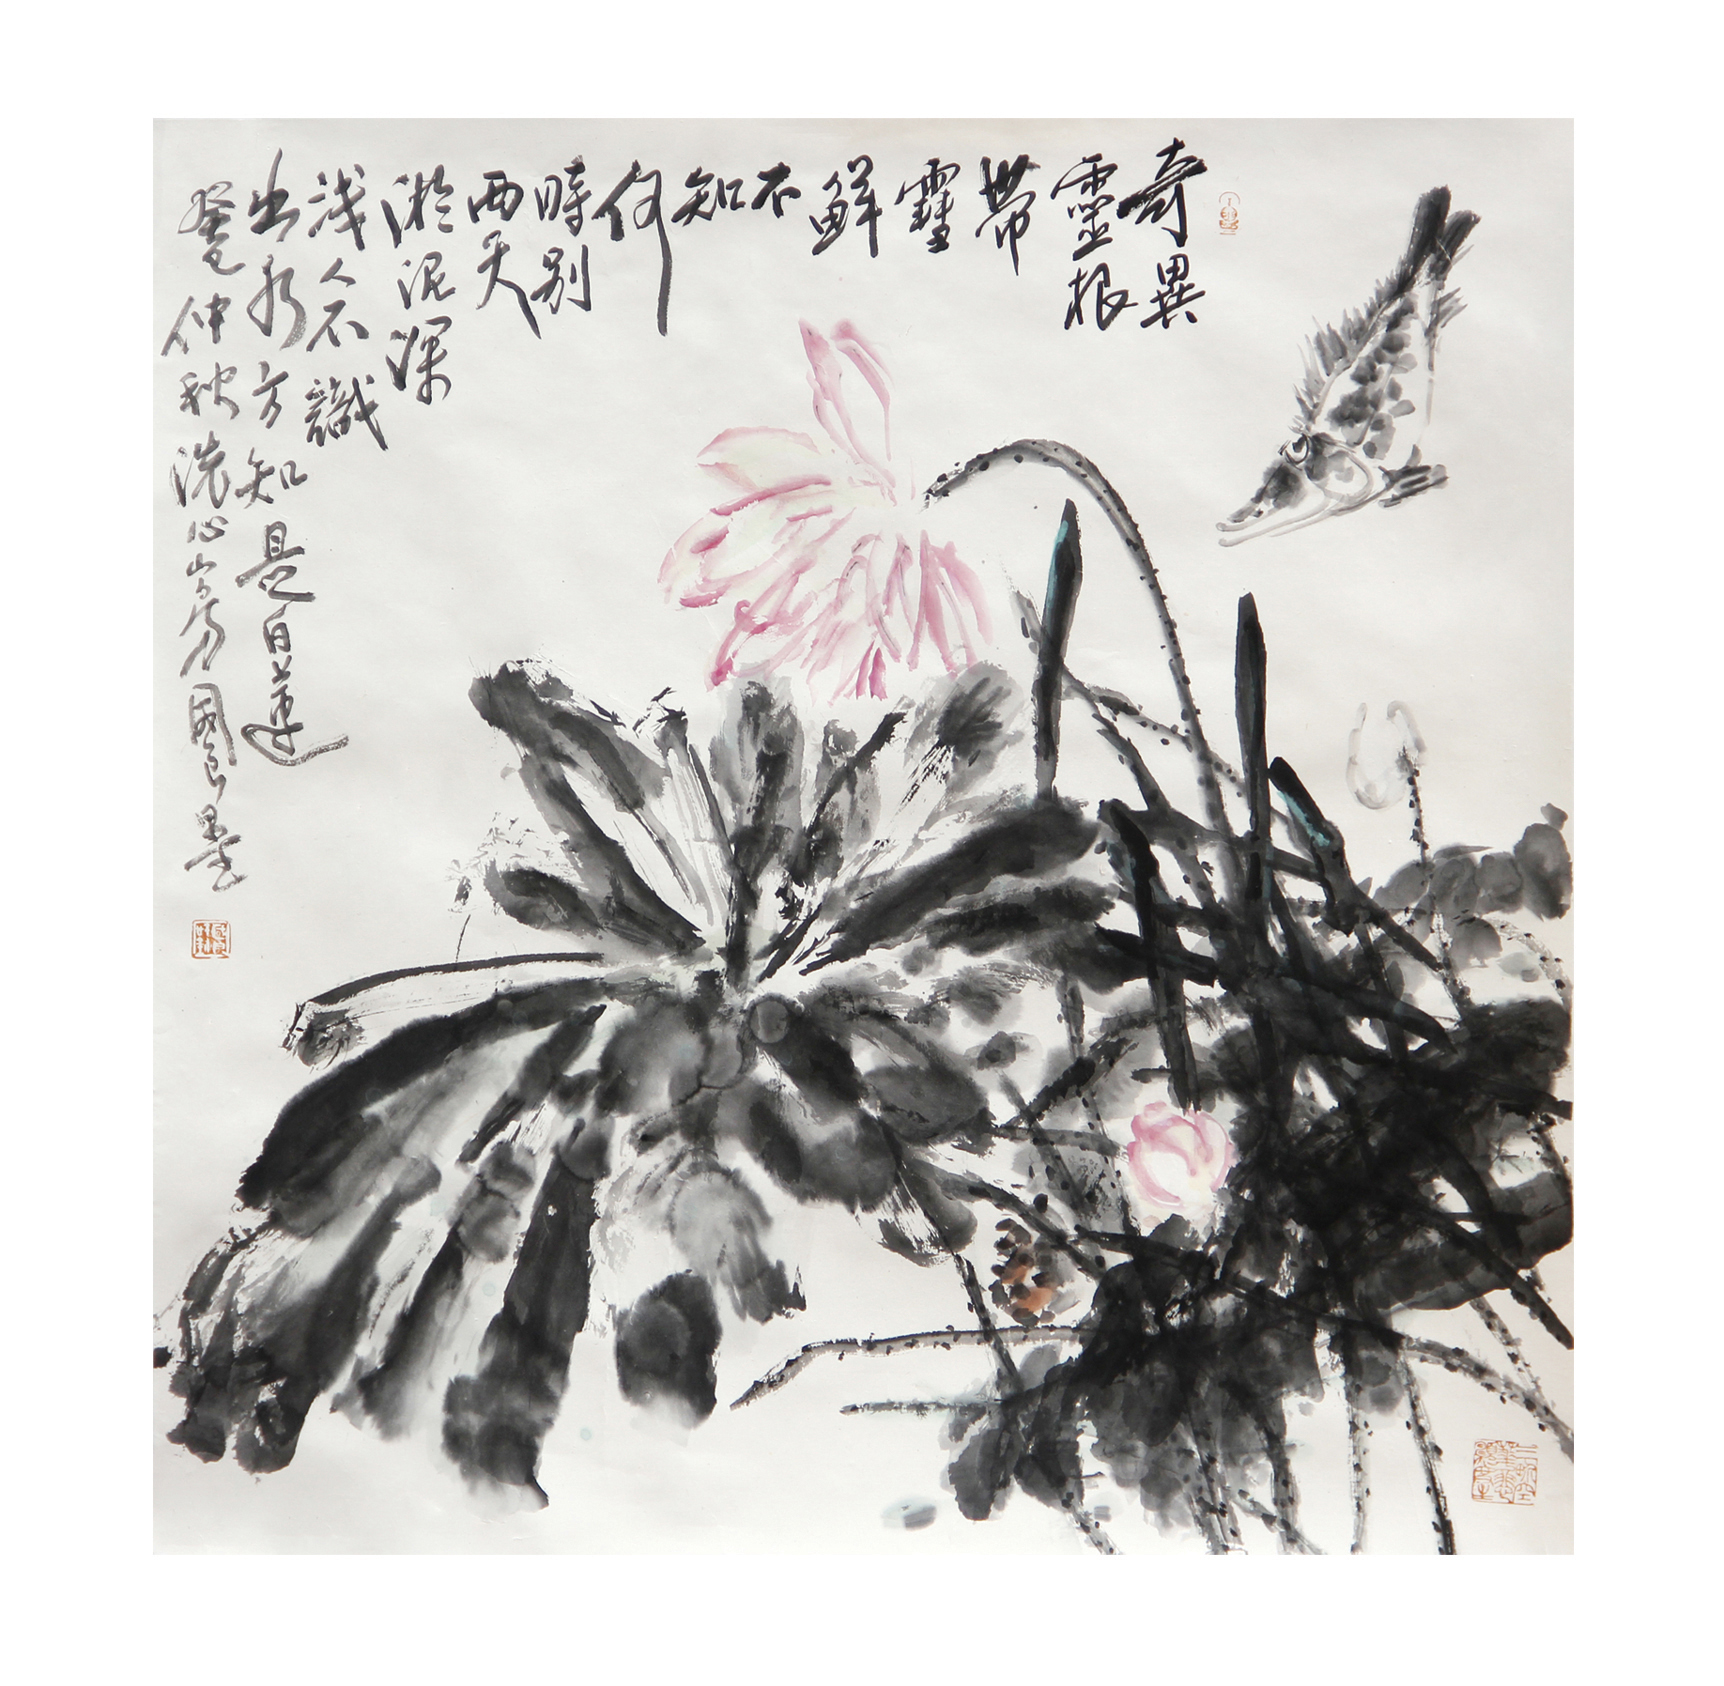 奇異
靈根
帶
露
鮮
不
知
何
時別
西天
淤泥深
淺人不識
出水方知是白蓮
癸巳仲秋洗心山房國良墨